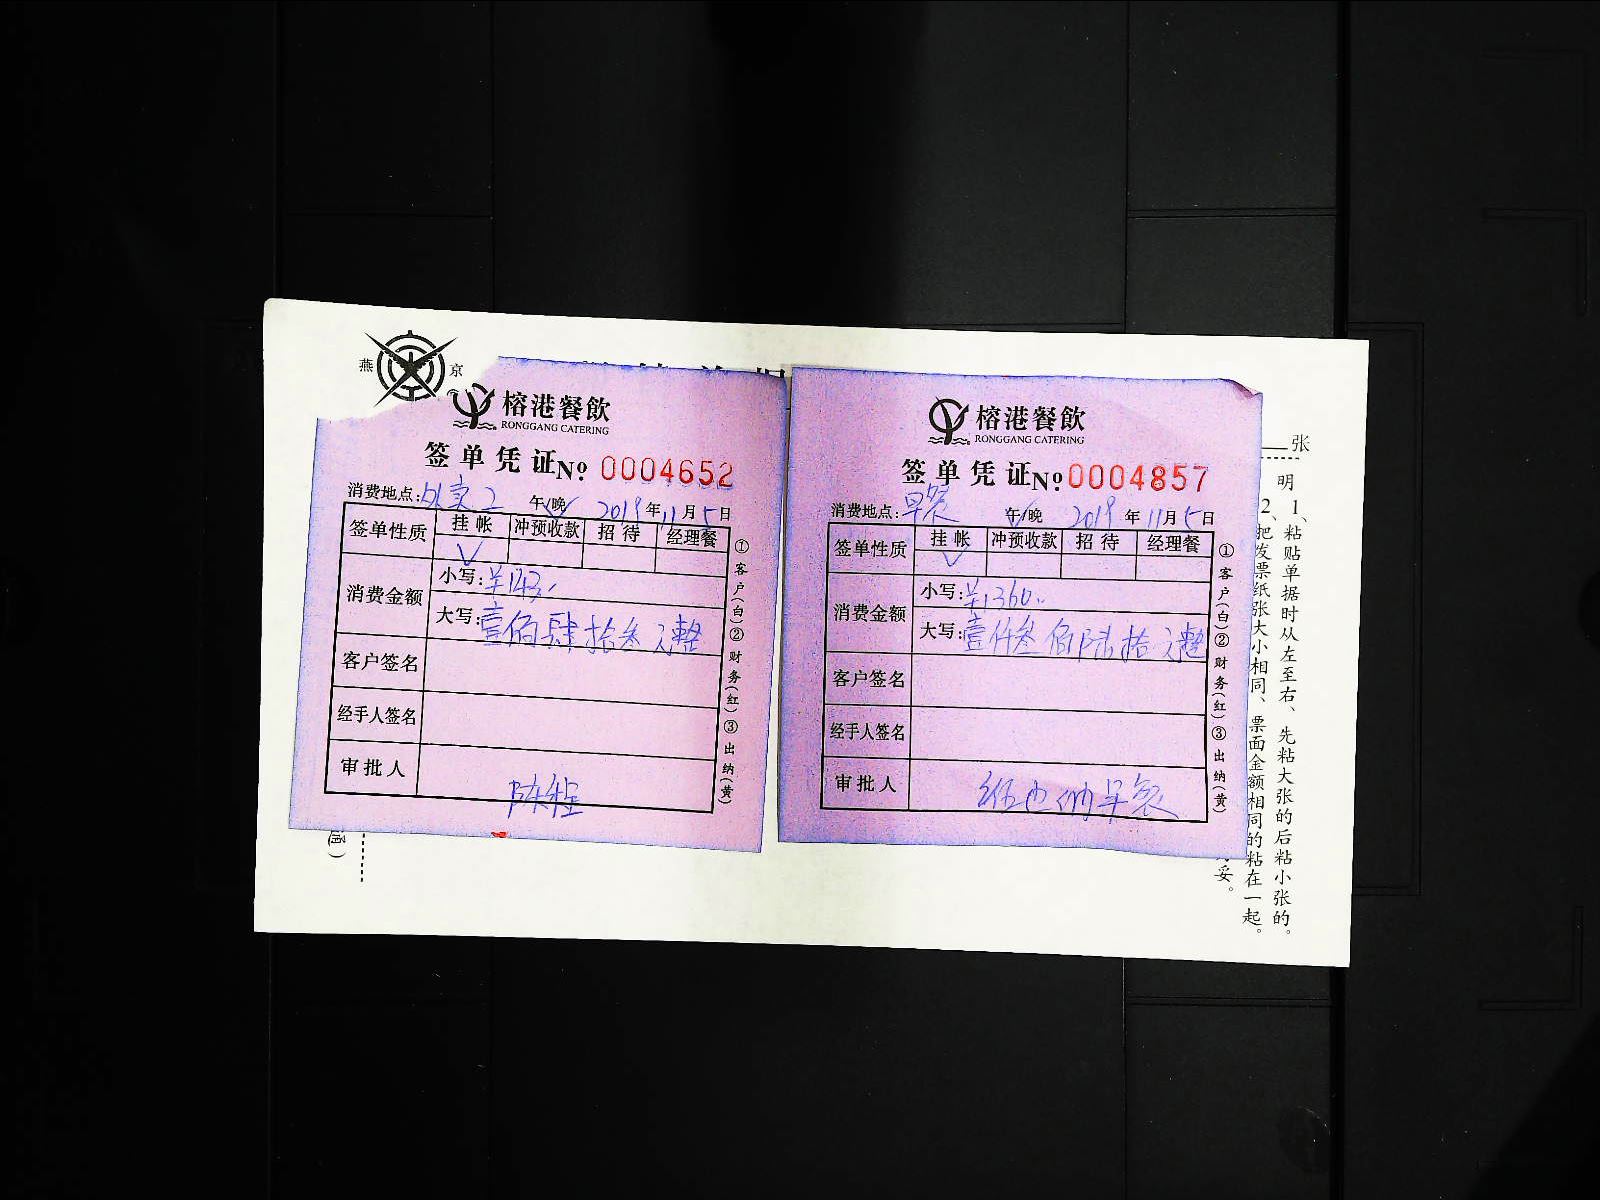 燕 京
榕港餐飲
RONGGANG CATERING
签单凭证 No 0004652
消费地点: 外卖2 午/晚 2019年11月5日
签单性质 挂帐 冲预收款 招待 经理餐
消费金额 小写: ¥143.
大写: 壹佰肆拾叁元整
客户签名
经手人签名
审批人
①客户(白)②财务(红)③出纳(黄)
榕港餐飲
RONGGANG CATERING
签单凭证 No 0004857
消费地点: 早餐 午/晚 2019年11月5日
签单性质 挂帐 冲预收款 招待 经理餐
消费金额 小写: ¥1360.
大写: 壹仟叁佰陆拾元整
客户签名
经手人签名
审批人 维也纳早餐
①客户(白)②财务(红)③出纳(黄)
张
明
1、粘贴单据时从左至右、先粘大张的后粘小张的。
2、把发票纸张大小相同、票面金额相同的粘在一起。
妥。